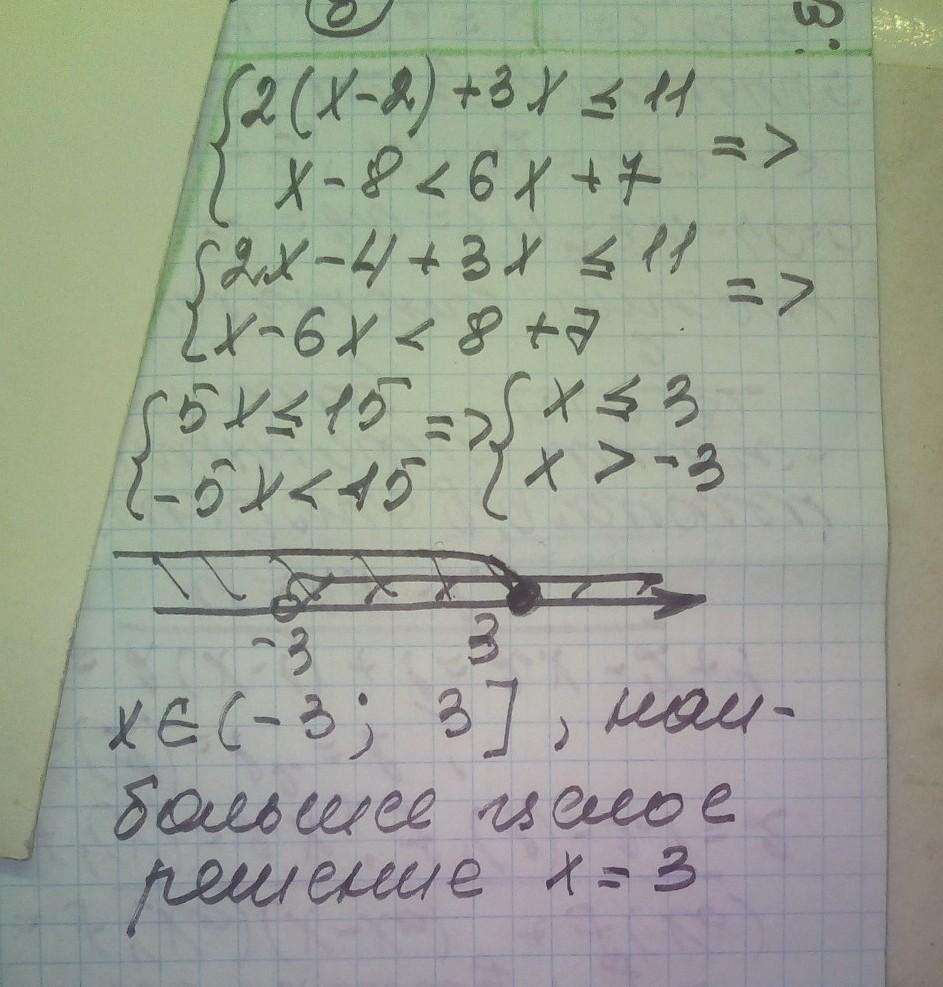 {2(x-2)+3x ≤ 11
x-8 < 6x+7 =>
{2x-4+3x ≤ 11
x-6x < 8+7 =>
{5x ≤ 15 => {x ≤ 3
-5x < 15 x > -3
-3 3
x∈(-3; 3], наи-
большее целое
решение x=3